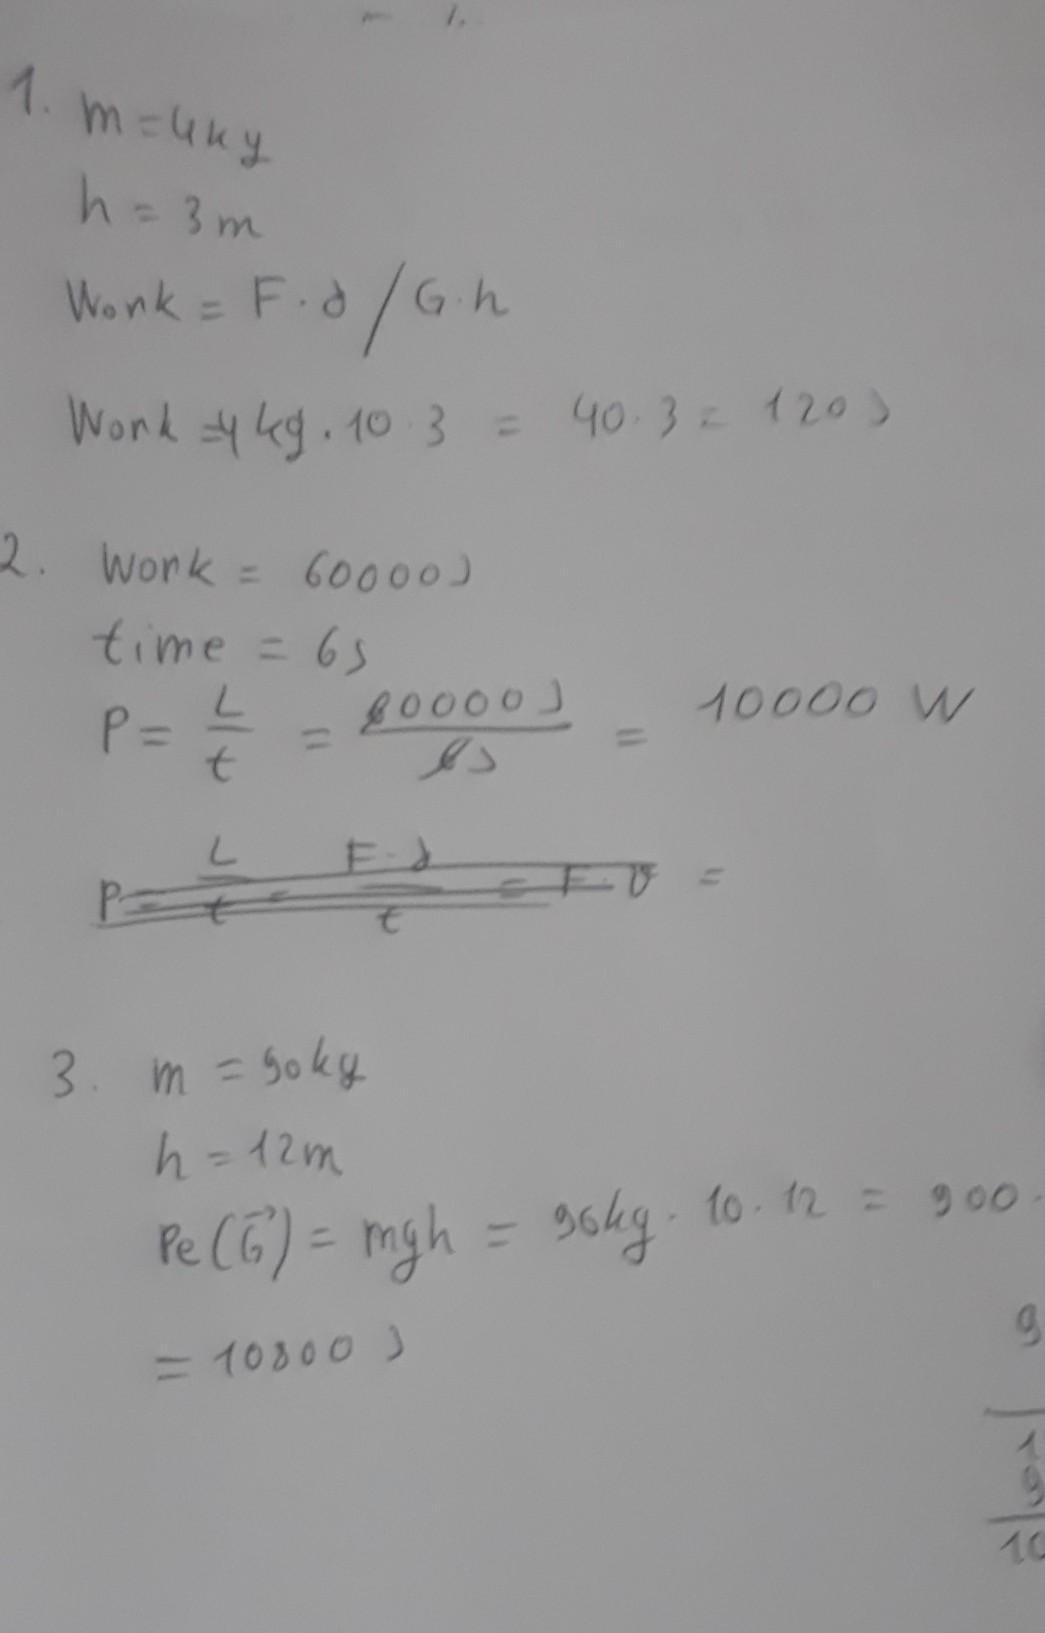 1. m = 4kg
h = 3m
Work = F·d / G·h
Work = 4kg·10·3 = 40·3 = 120J
2. Work = 60000J
time = 6s
P = L/t = 60000J/6s = 10000 W
P = L/t = F·d/t = F·v =
3. m = 90kg
h = 12m
Pe(G⃗) = mgh = 90kg·10·12 = 900·
= 10800J
9
1
9
10